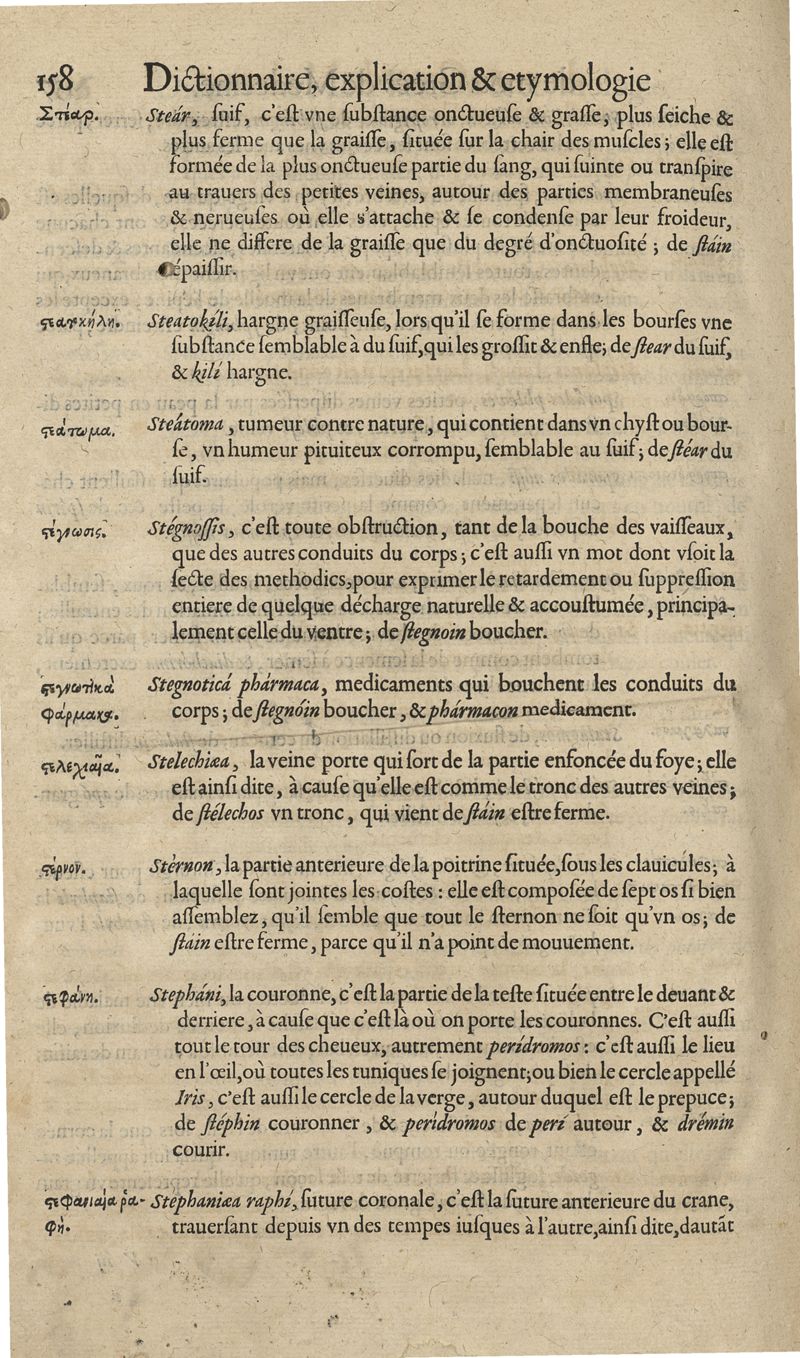 158 Dictionnaire, explication & etymologie
Στέαρ. Steár, ſuif, c'eſt vne ſubſtance onctueuſe & graſſe, plus ſeiche &
plus ferme que la graiſſe, ſituée ſur la chair des muſcles; elle eſt
formée de la plus onctueuſe partie du ſang, qui ſuinte ou tranſpire
au trauers des petites veines, autour des parties membraneuſes
& nerueuſes où elle s'attache & ſe condenſe par leur froideur,
elle ne differe de la graiſſe que du degré d'onctuoſité; de ſtáin
épaiſſir.
Steatokíli, hargne graiſſeuſe, lors qu'il ſe forme dans les bourſes vne
ſubſtance ſemblable à du ſuif, qui les groſſit & enfle; de ſtear du ſuif,
& kilí hargne.
ϛεάτωμα. Steátoma, tumeur contre nature, qui contient dans vn chyſt ou bour-
ſe, vn humeur pituiteux corrompu, ſemblable au ſuif; de ſtéar du
ſuif.
ϛέγνωσις. Stégnoſſis, c'eſt toute obſtruction, tant de la bouche des vaiſſeaux,
que des autres conduits du corps; c'eſt auſſi vn mot dont vſoit la
ſecte des methodics, pour exprimer le retardement ou ſuppreſſion
entiere de quelque décharge naturelle & accouſtumée, principa-
lement celle du ventre; de ſtegnoin boucher.
ϛεγνωτικὰ Stegnoticá phármaca, medicaments qui bouchent les conduits du
φάρμακα. corps; de ſtegnóin boucher, & phármacon medicament.
ϛελεχιαῖα. Stelechiæa, la veine porte qui ſort de la partie enfoncée du foye; elle
eſt ainſi dite, à cauſe qu'elle eſt comme le tronc des autres veines;
de ſtélechos vn tronc, qui vient de ſtáin eſtre ferme.
ϛέρνον. Stérnon, la partie anterieure de la poitrine ſituée, ſous les clauicules; à
laquelle ſont jointes les coſtes : elle eſt compoſée de ſept os ſi bien
aſſemblez, qu'il ſemble que tout le ſternon ne ſoit qu'vn os; de
ſtáin eſtre ferme, parce qu'il n'a point de mouuement.
ϛεφάνη. Stepháni, la couronne, c'eſt la partie de la teſte ſituée entre le deuant &
derriere, à cauſe que c'eſt là où on porte les couronnes. C'eſt auſſi
tout le tour des cheueux, autrement perídromos : c'eſt auſſi le lieu
en l'œil, où toutes les tuniques ſe joignent; ou bien le cercle appellé
Iris, c'eſt auſſi le cercle de la verge, autour duquel eſt le prepuce;
de ſtéphin couronner, & perìdromos de perí autour, & drémin
courir.
ϛεφανιαία ῥα- Stephaniæa raphí, ſuture coronale, c'eſt la ſuture anterieure du crane,
φὴ. trauerſant depuis vn des tempes iuſques à l'autre, ainſi dite, dautāt